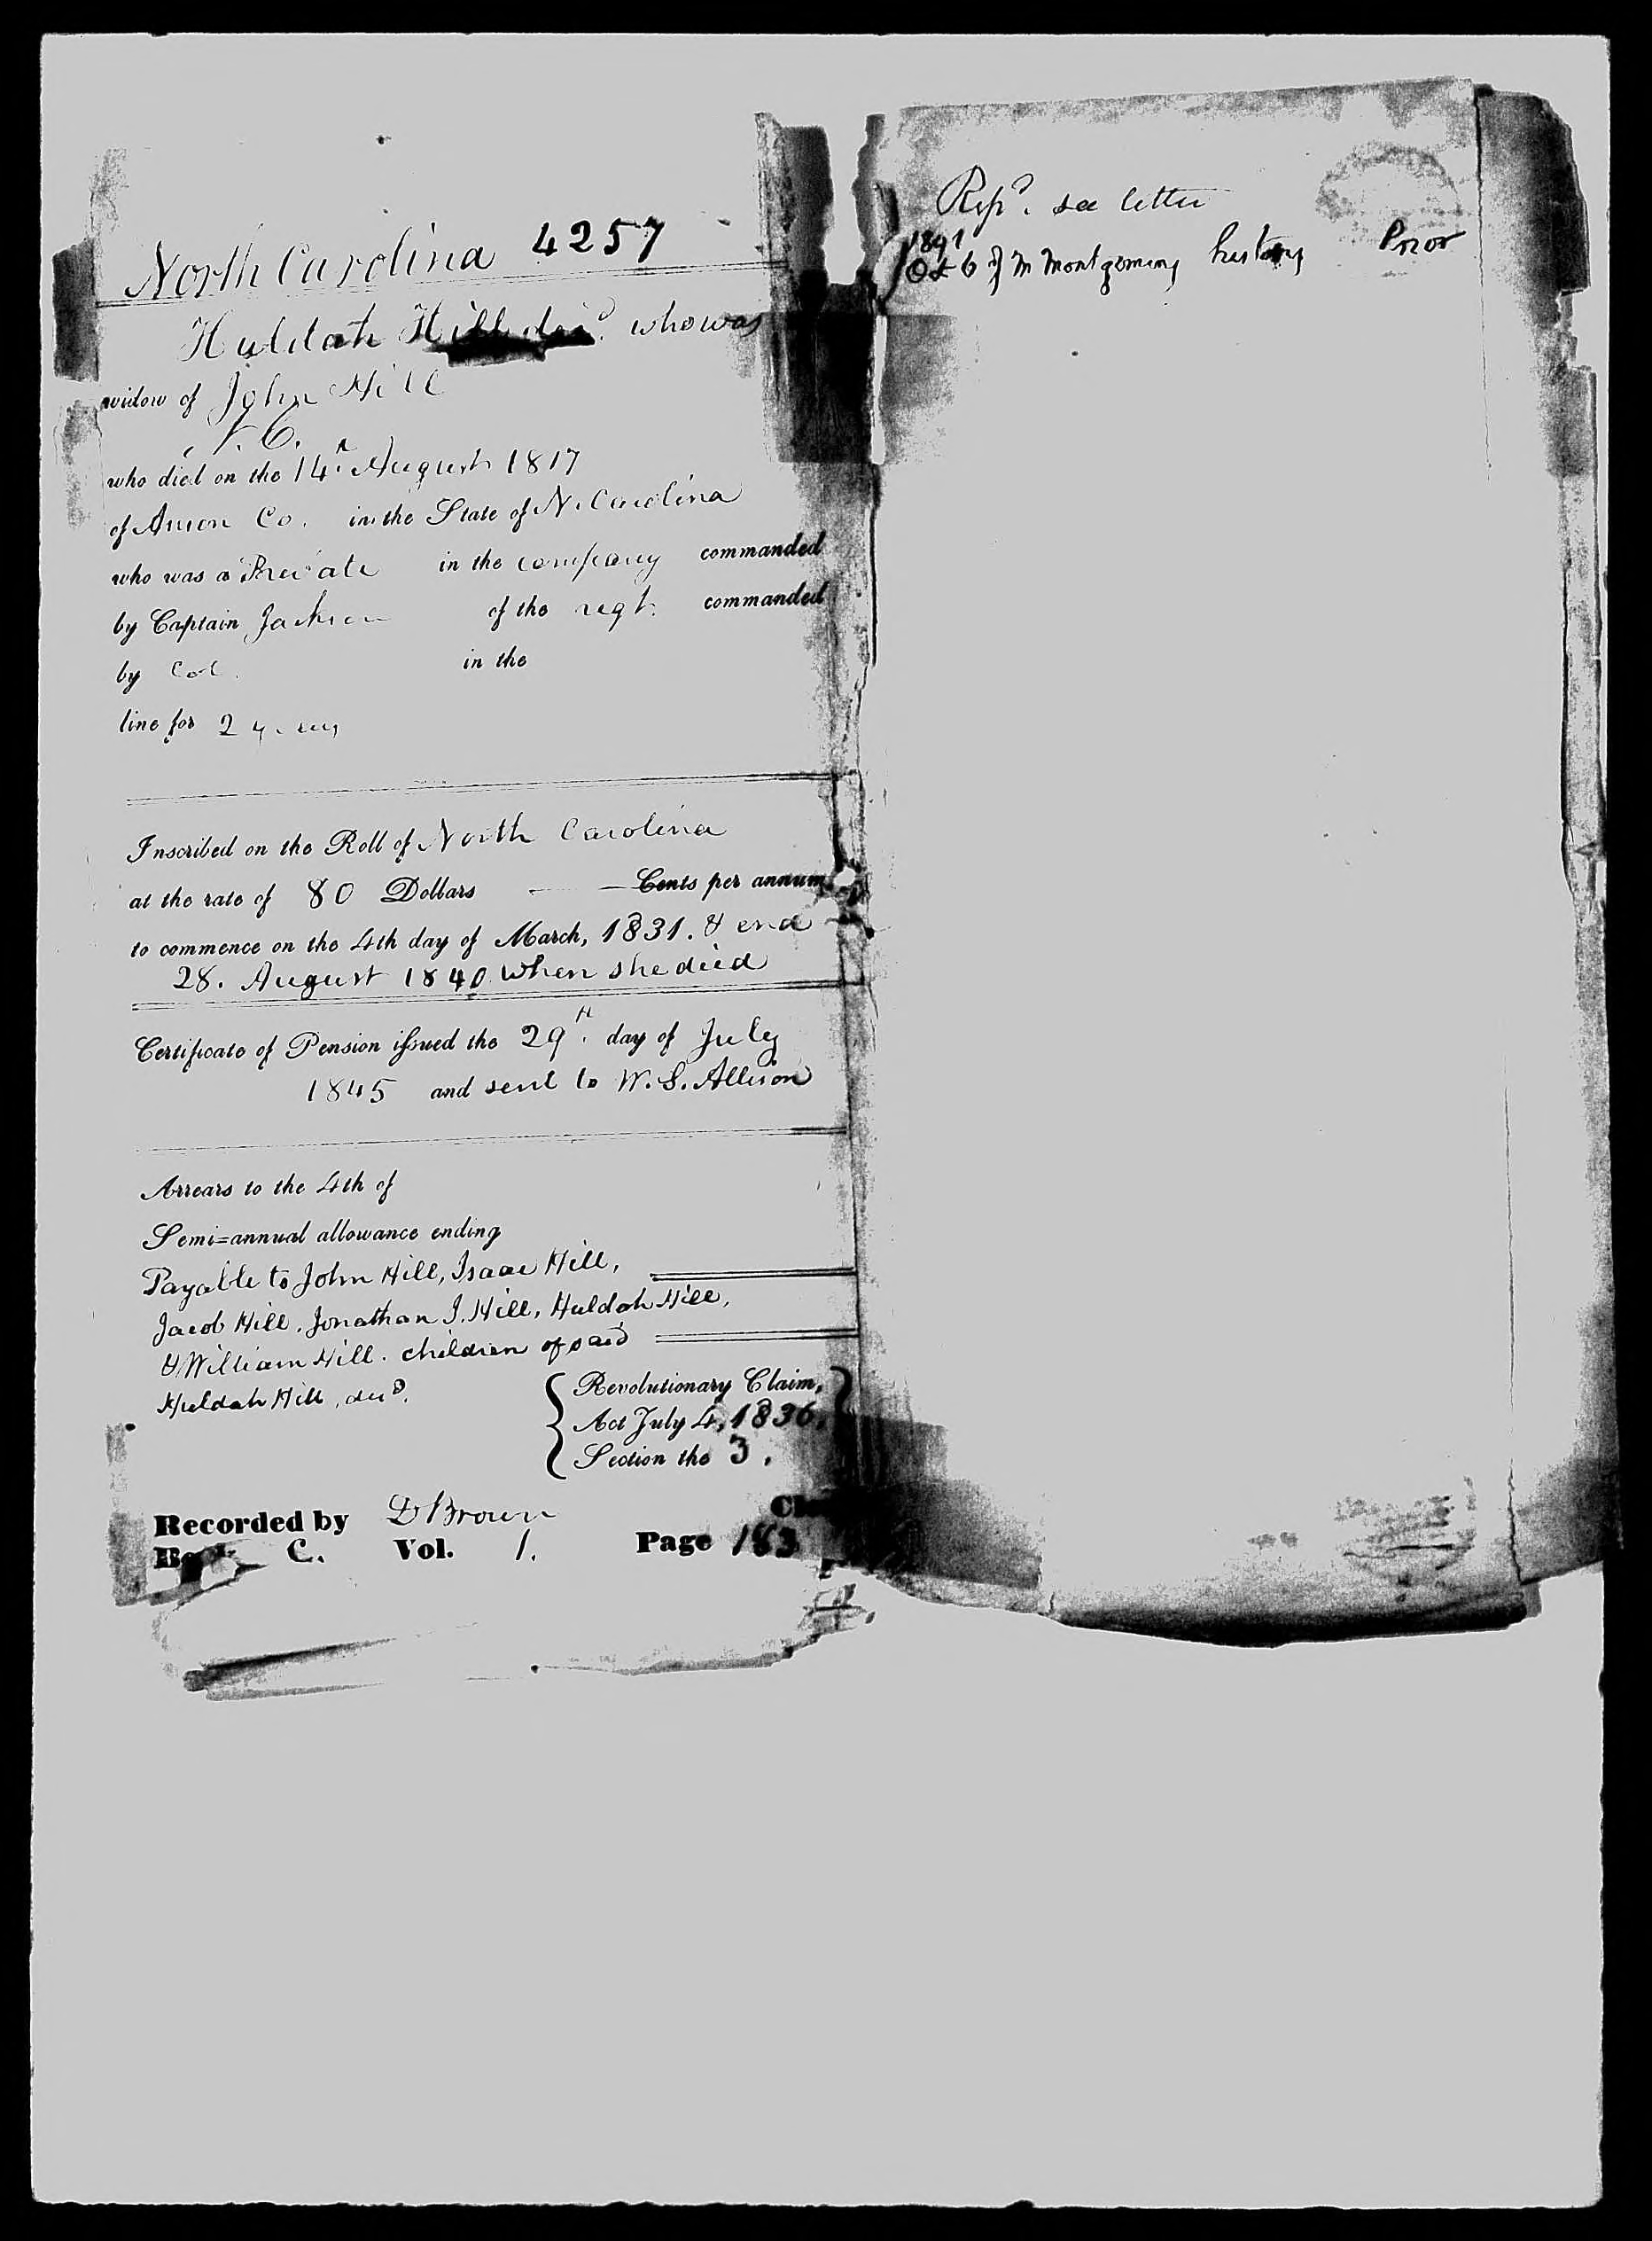 North Carolina 4257
Huldah Hill decd. who was
widow of John Hill
N. C.
who died on the 14th August 1817
of Anson Co. in the State of N. Carolina
who was a Private in the company commanded
by Captain Jackson of the regt. commanded
by Col. in the
line for 2 years
Inscribed on the Roll of North Carolina
at the rate of 80 Dollars — — Cents per annum
to commence on the 4th day of March, 1831. & end
28. August 1840 when she died
Certificate of Pension issued the 29th day of July
1845 and sent to W. S. Allison
Arrears to the 4th of
Semi-annual allowance ending
Payable to John Hill, Isaac Hill,
Jacob Hill, Jonathan J. Hill, Huldah Hill,
& William Hill. children of said
Huldah Hill, decd.
Revolutionary Claim,
Act July 4, 1836,
Section the 3.
Recorded by D Brown
Book C. Vol. 1. Page 183
Repd. see letter
1891
Oct 6 J M Montgomery history Prior